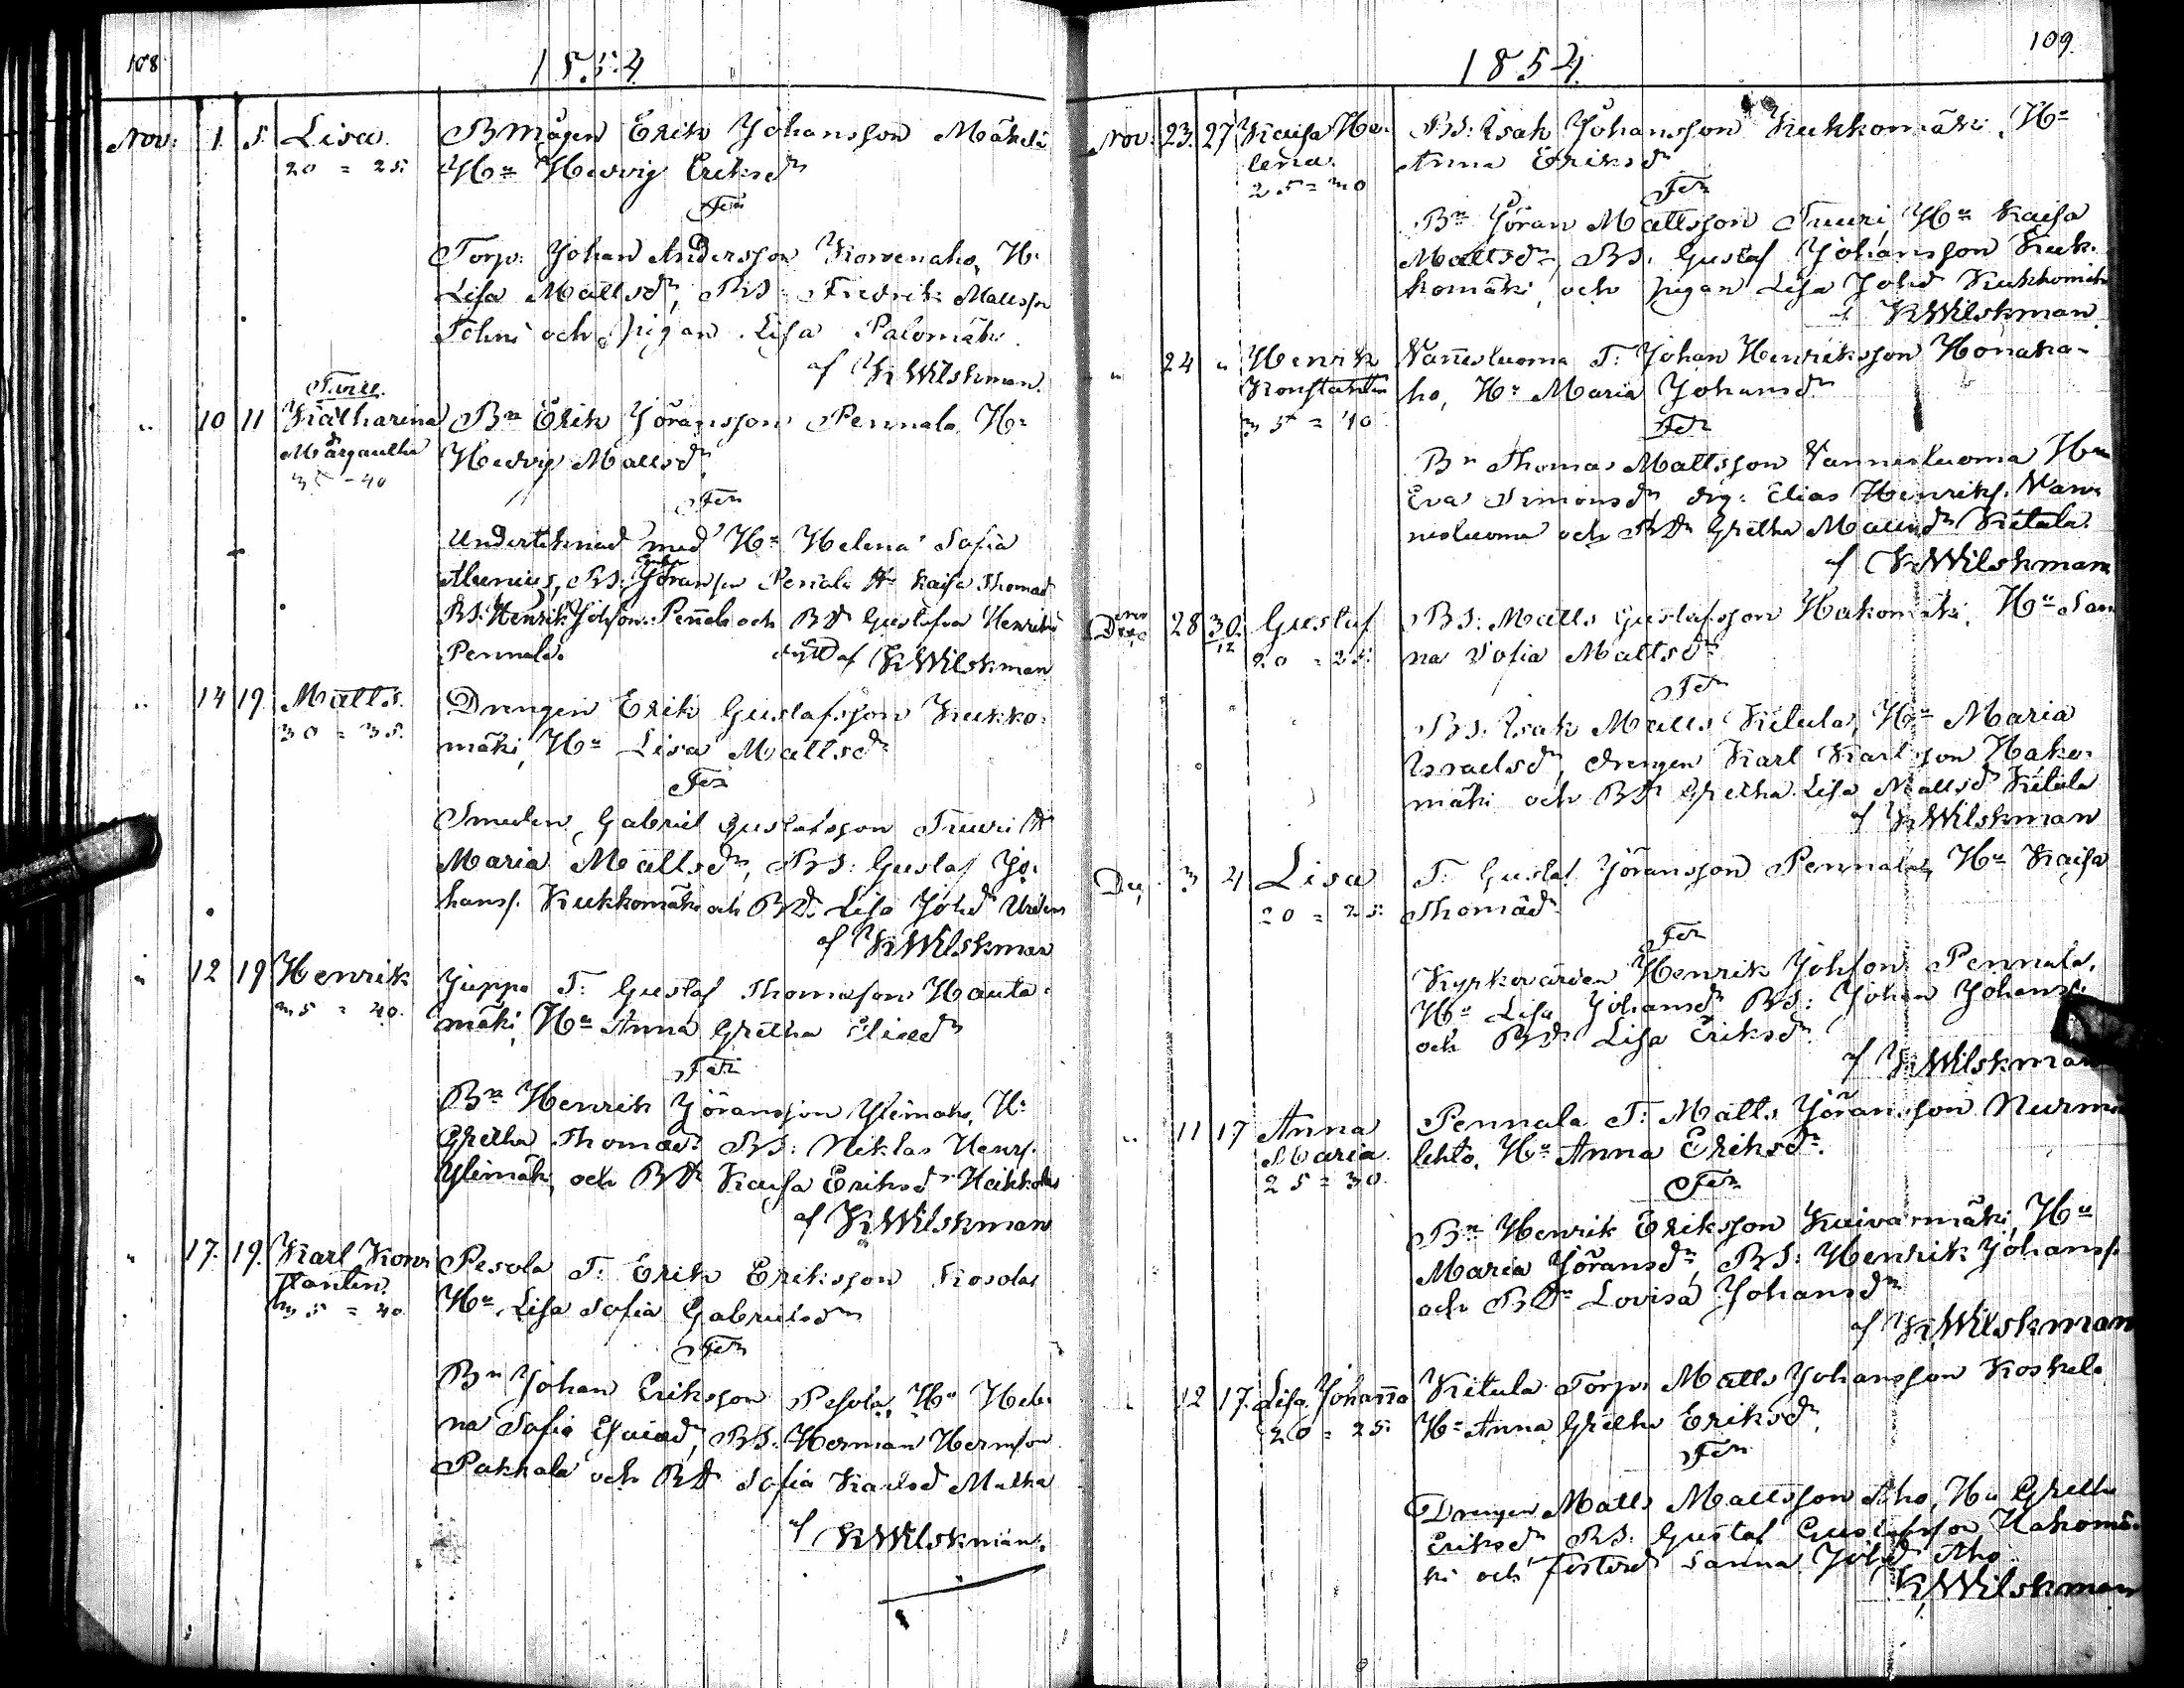 108
1854.
Nov: 1. 5. Lisa. BMågen Erik Johansson Mäkelä
20 = 25. Hu Hedvig Eriksdr
Fr
Torp. Johan Andersson Korvenaho, H.
Lisa Mattsdr, BS: Fredrik Mattsson
och pigan Lisa Palomäki.
af KWilskman.
10 11 Katharina Bn Erik Jöransson Pennala, H:
Margaretha Hedvig Mattsdr
35 - 40
Fr
Underteknad med Hu Helena Sofia
Alcenius, BS: Jöransson Pennala Hu Kaisa Thomasd
BS: Henrik Johsson Pennala och BDr Gustafva Henriksd
Pennala. af KWilskman
14 19 Matts. Drengen Erik Gustafsson Kukko-
30 = 35. mäki, Hu Lisa Mattsdr
Fr
Smeden Gabriel Gustafsson Tuuri Hu
Maria Mattsdr, BS: Gustaf Jo-
hanss. Kukkomäki och BDr Lisa Johdr
af KWilskman
12 19 Henrik Juppa T: Gustaf Thomasson Hauta-
35 = 40. mäki, Hu Anna Gretha Eliedr
Fr
Bn Henrik Jöransson Ylimäki, H:
Gretha Thomasdr BS: Niklas Henrs.
Ylimäki, och BDr Kaisa Eriksdr Heikkola
af KWilskman
17. 19. Karl Kon- Pesola T: Erik Eriksson Kosola
stantin. Hu Lisa Sofia Gabrielsdr
35 = 40
Fr
Bn Johan Eriksson Pesola, Hu Hele-
na Sofia Esaiaedr, BS: Herman Hermsson
Pakkala och BDr Sofia Karlsd
af KWilskman.
109.
1854.
Nov. 23. 27 Kaisa He- BS: Isak Johansson Kukkomäki, Hu
lena. Anna Eriksdr
25 = 30
Fr
Bn Jöran Mattsson Tuuri, Hu Kaisa
Mattsdr, BS. Gustaf Johansson Kuk-
komäki, och pigan Lisa Johd Kukkomäki
KWilskman
24 Henrik Vannesluoma T: Johan Henriksson Honaka-
Konstantin ho, Hu Maria Johansdr
35 = 40
Fr
Bn Thomas Mattsson Vannesluoma Hu
Eva Simonsdr drg: Elias Henriks. Van-
nesluoma och BDr Gretha Kitula.
af KWilskman
28 30. Gustaf BS: Matts Gustafsson Hakomäki, Hu San-
12
20 = 25. na Sofia Mattsdr
Fr
BS. Isak Matts Kitula, Hu Maria
Israelsdr, drengen Karl Karlsson Hako-
mäki och BDr Gretha Lisa Mattsdr Kitula
af KWilskman
Dec. 3 4 Lisa T. Gustaf Jöransson Pennala, Hu Kaisa
20 = 25. Thomasdr
Fr
Kyrkovärden Henrik Johsson Pennala,
Hu Lisa Johansdr BS: Johan Johanss.
och BDr Lisa Eriksdr.
af KWilskman
11 17 Anna Pennala T: Matts Jöransson Nurmi-
Maria. lehto, Hu Anna Eriksdr.
25 = 30.
Fr
Bn Henrik Eriksson Kuivanmäki, Hu
Maria Jöransdr, BS: Henrik Johanss.
och BDr Lovisa Johansdr
af KWilskman
12 17. Lisa Johanna Kitula Torp: Matts Johansson Koskela
20 = 25. Hu Anna Gretha Eriksdr.
Fr
Drengen Matts Mattsson Aho, Hu Gretha
Eriksdr BS. Gustaf Gustafsson Hakomä-
ki och Sanna Johdr Aho
KWilskman